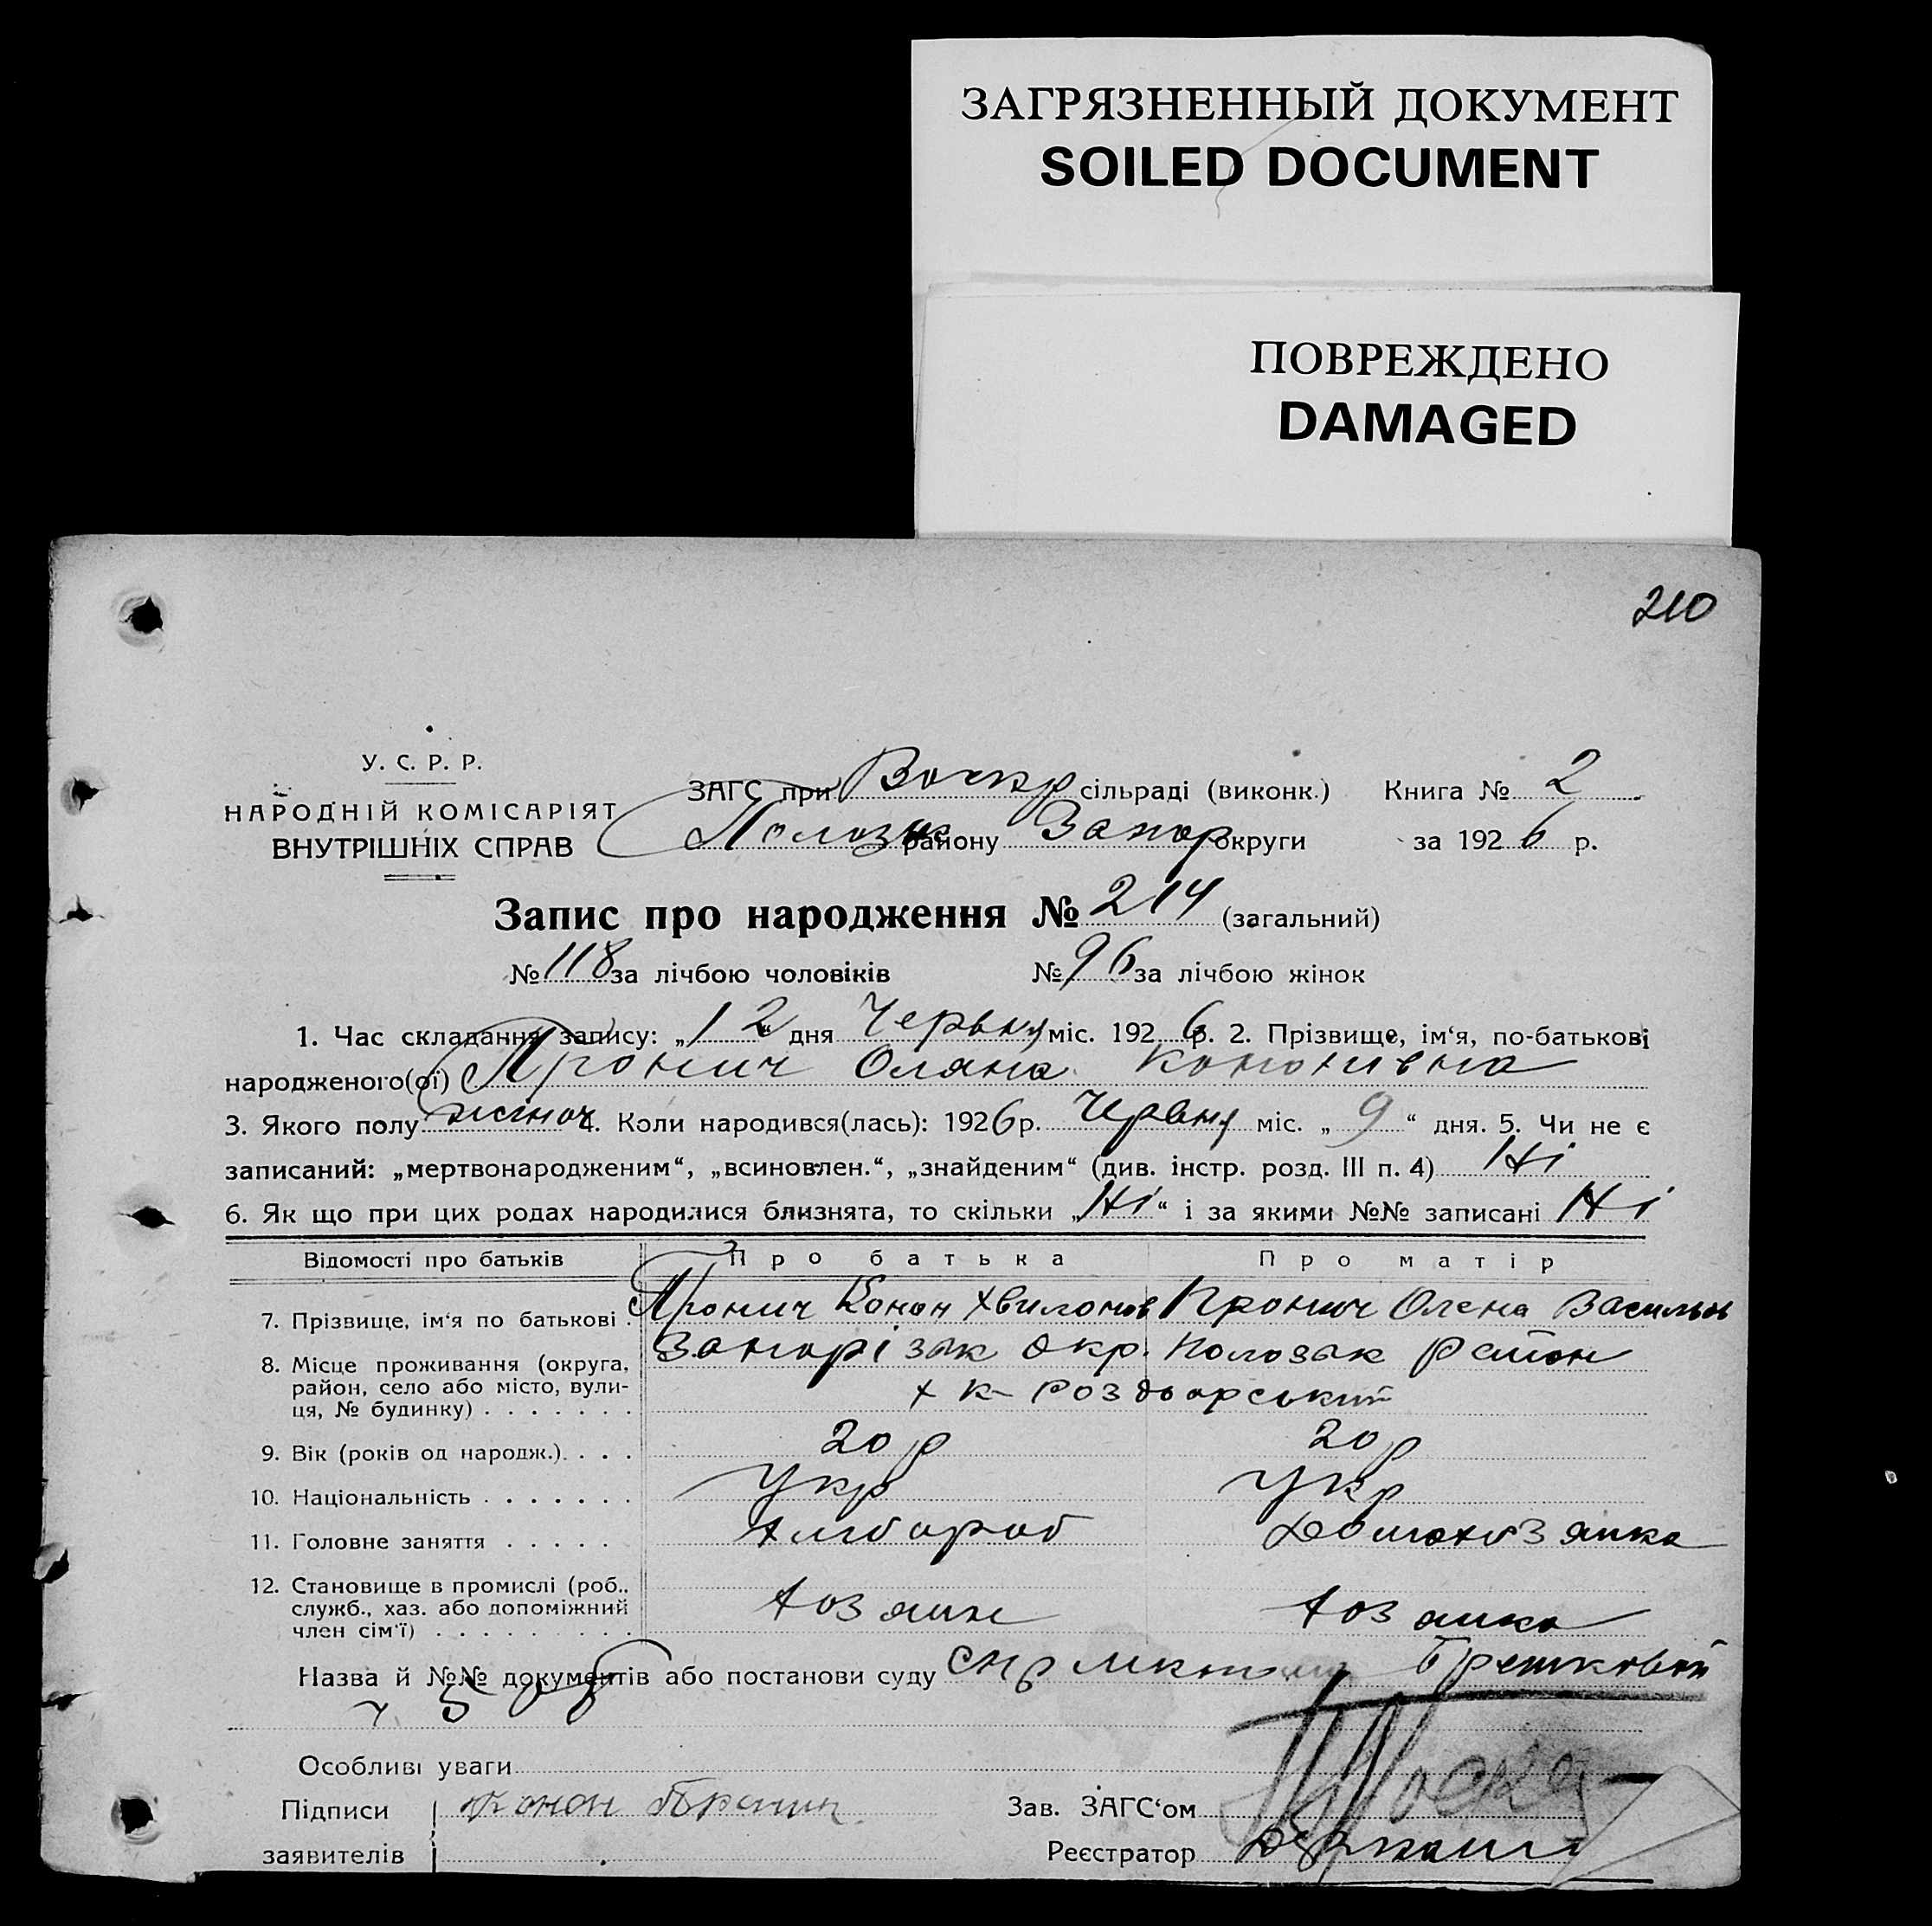 ЗАГРЯЗНЕННЫЙ ДОКУМЕНТ
SOILED DOCUMENT
ПОВРЕЖДЕНО
DAMAGED
210
У. С. Р. Р.
НАРОДНІЙ КОМІСАРІЯТ
ВНУТРІШНІХ СПРАВ
ЗАГС при Воскр сільраді (виконк.) Книга № 2
Полозьк району Запор округи за 1926 р.
Запис про народження № 214 (загальний)
№ 118 за лічбою чоловіків № 96 за лічбою жінок
1. Час складання запису: „12“ дня Червня міс. 1926 р. 2. Прізвище, ім‘я, по-батькові
народженого(ої) Пронич Оляна Кононивна
3. Якого полу жіноч 4. Коли народився(лась): 1926 р. Червня міс. „9“ дня. 5. Чи не є
записаний: „мертвонародженим“, „всиновлен.“, „знайденим“ (див. інстр. розд. III п. 4) Ні
6. Як що при цих родах народилися близнята, то скільки „Ні“ і за якими №№ записані Ні
Відомості про батьків Про батька Про матір
7. Прізвище, ім‘я по батькові . Пронич Конон Хвилонов Пронич Олена Васильов
8. Місце проживання (округа, район, село або місто, вулиця, № будинку) . . . . . . . Запорізьк Окр. Полозьк район
х к-
9. Вік (років од народж.). . . . 20 р 20 р
10. Національність . . . . . . . Укр Укр
11. Головне заняття . . . . . Хлібороб Домохозяйка
12. Становище в промислі (роб., служб., хаз. або допоміжний член сім‘ї) . . . . . . . . . Хозяин Хозяйка
Назва й №№ документів або постанови суду
Особливі уваги
Підписи Конон Пронич Зав. ЗАГС‘ом
заявителів Реєстратор